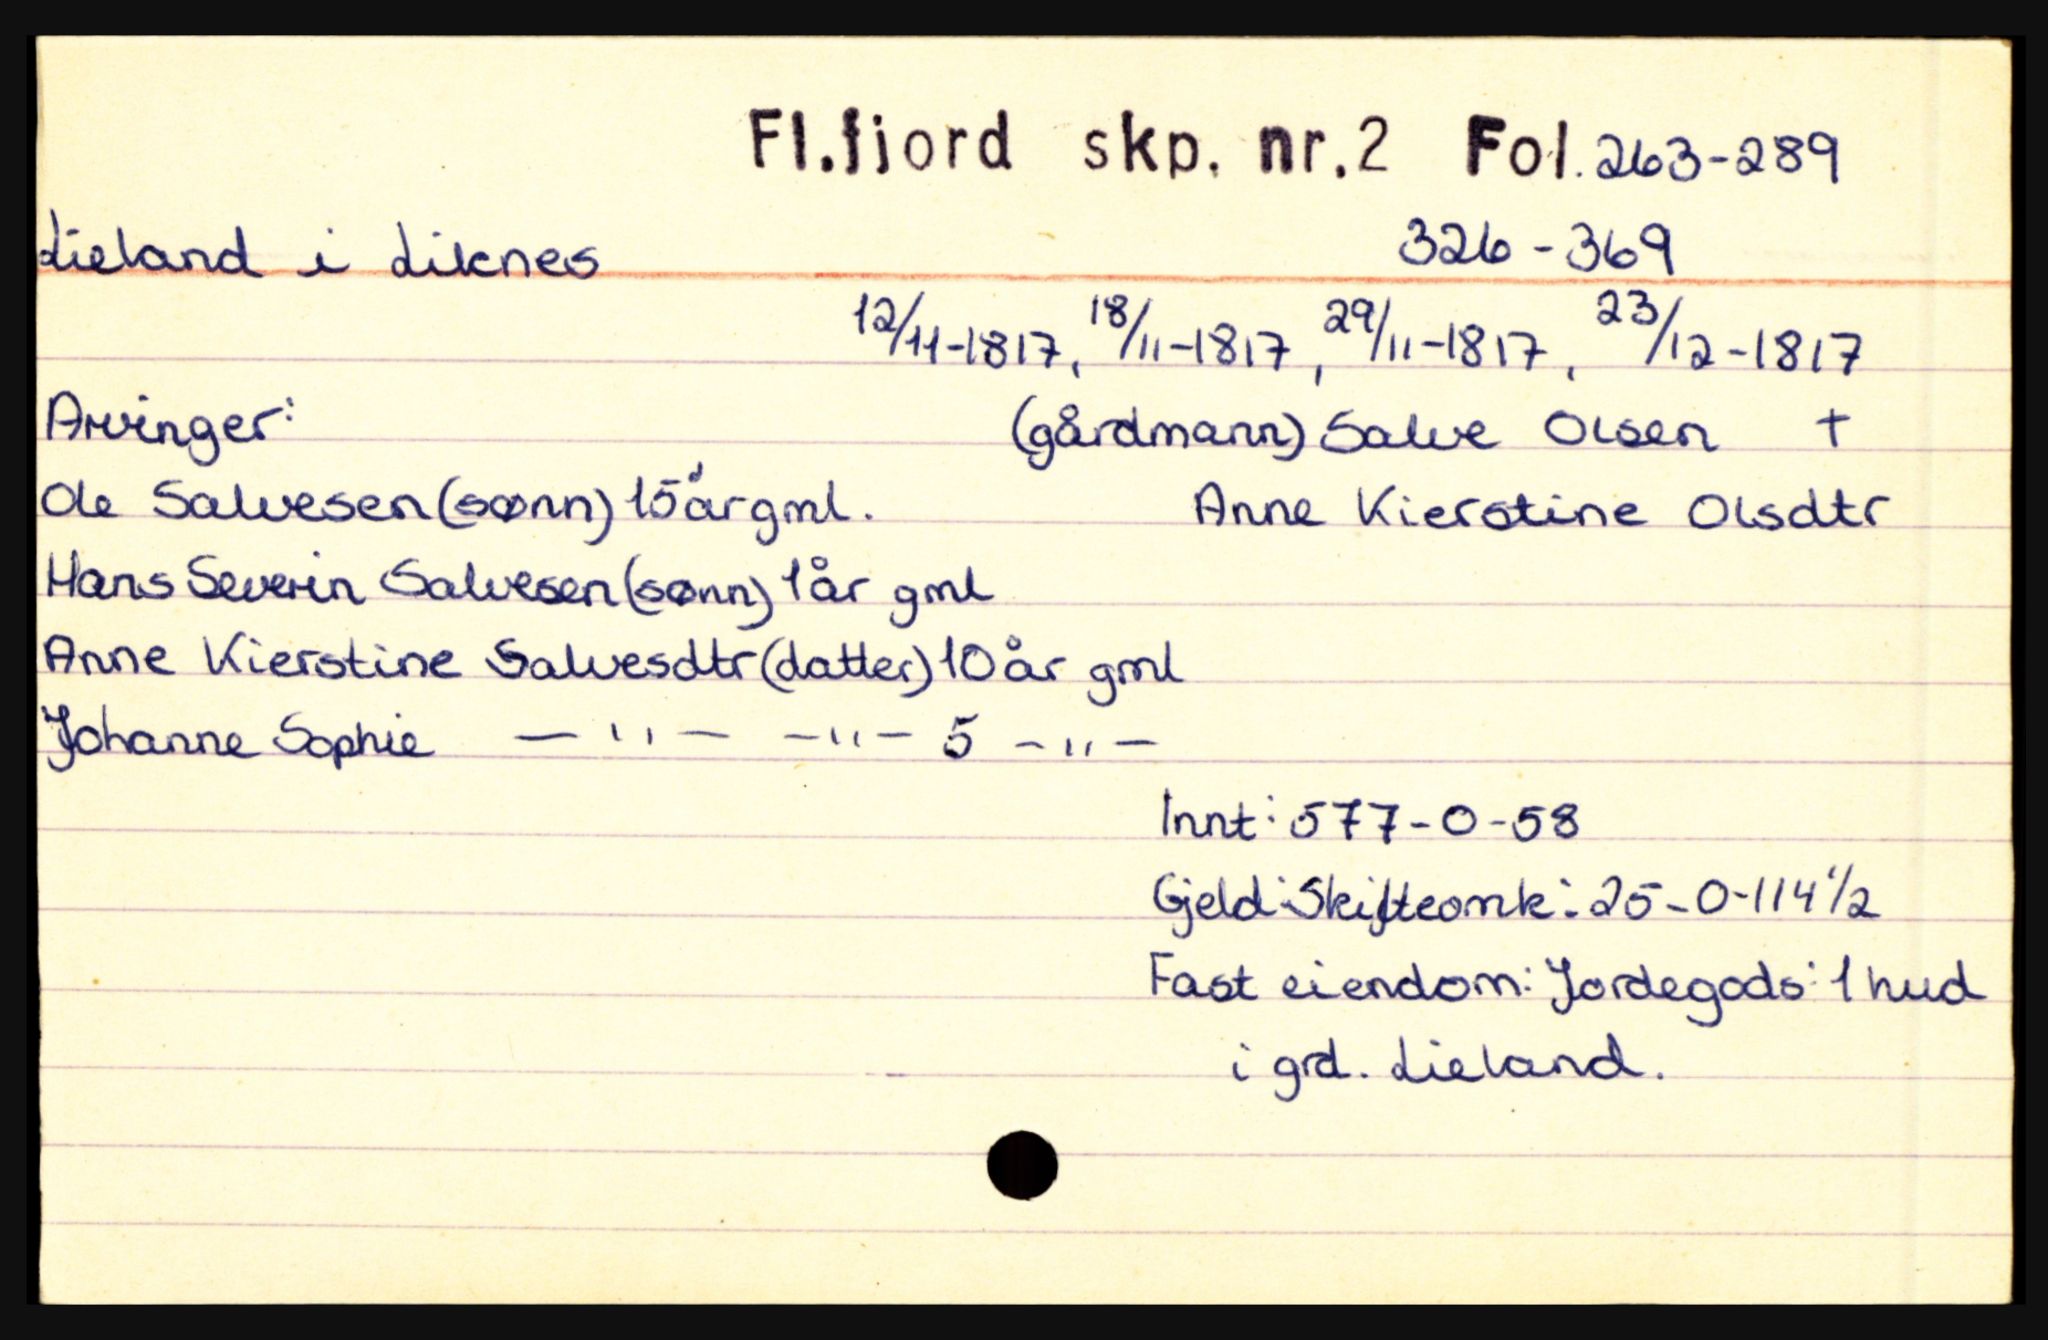 Fl.fjord skp. nr.2 Fol.263-289
Lieland i Liknes 326-369
12/11-1817, 18/11-1817, 29/11-1817, 23/12-1817
Arvinger: (gårdmann) Salve Olsen †
Ole Salvesen (sønn) 15 år gml. Anne Kierstine Olsdtr
Hans Severin Salvesen (sønn) 1 år gml
Anne Kierstine Salvesdtr (datter) 10 år gml
Johanne Sophie —"— —"— 5 —"—
Innt: 577-0-58
Gjeld: Skifteomk: 25-0-114 1/2
Fast eiendom: Jordegods: 1 hud
i grd. Lieland.